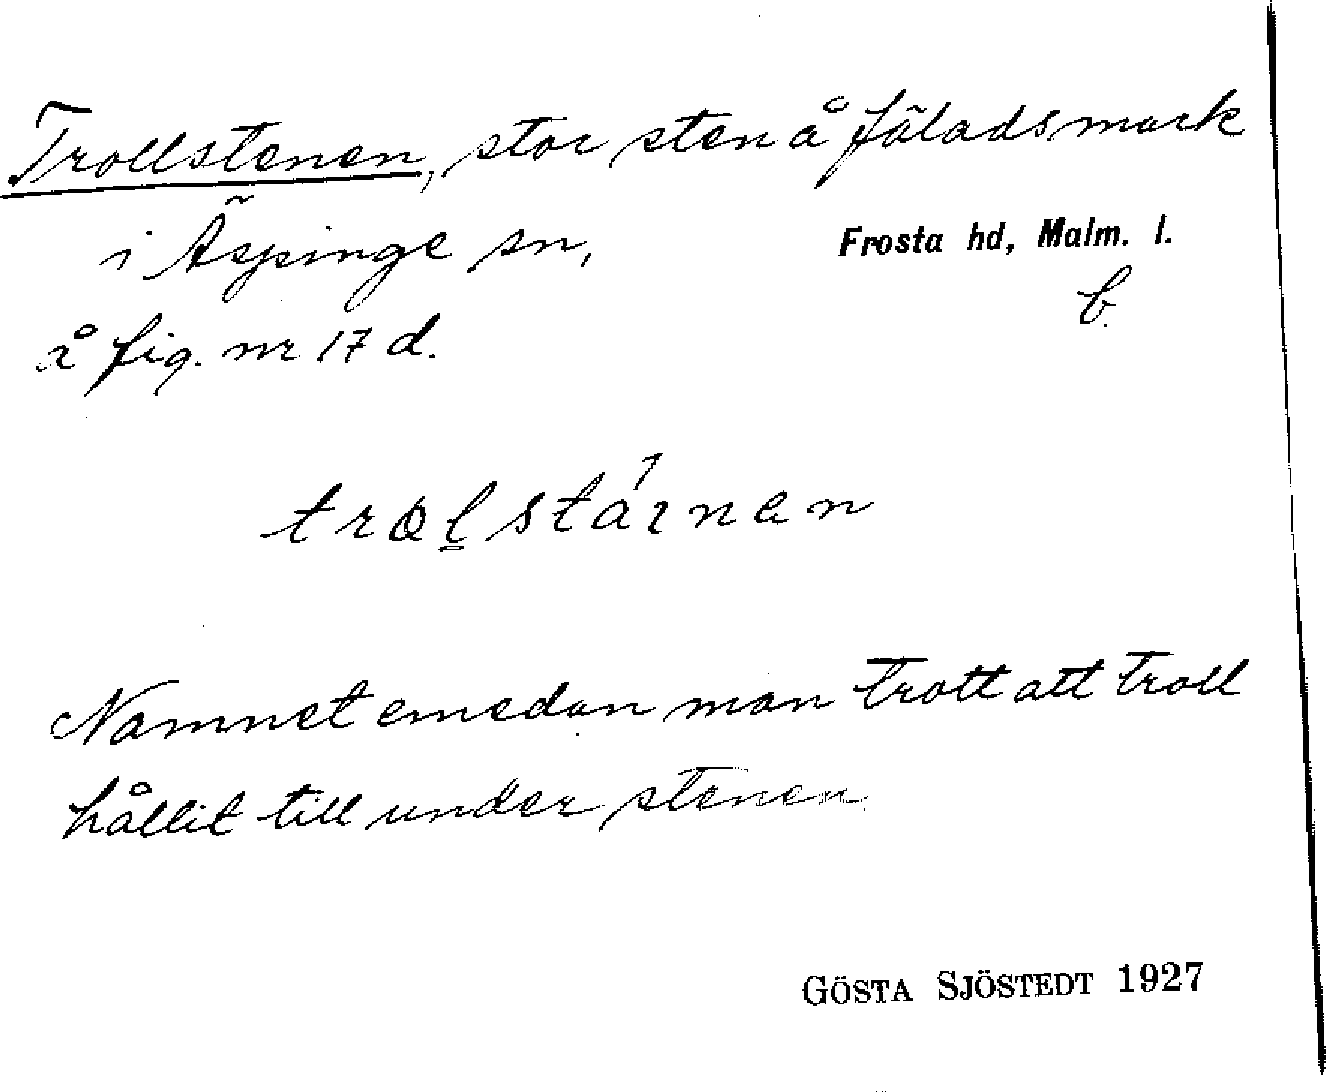 Trollstenen, stor sten å fäladsmark
i Äspinge sn, Frosta hd, Malm. l.
b.
å fig. nr 17 d.
Namnet emedan man trott att troll
hållit till under stenen.
GÖSTA SJÖSTEDT 1927